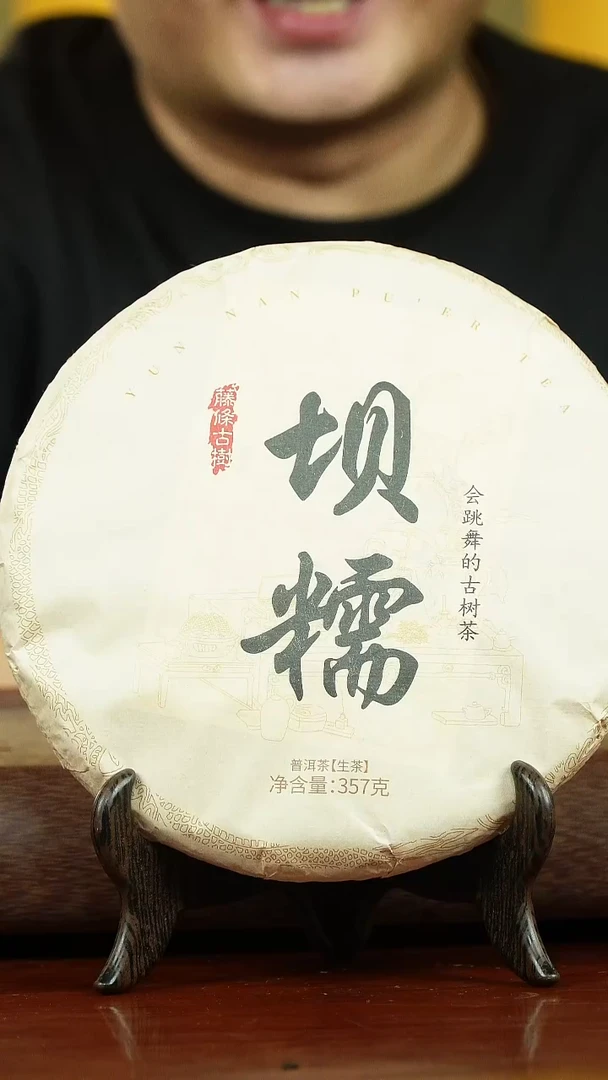 YUN NAN PU'ER TEA
藤條古樹
坝糯
会跳舞的古树茶
普洱茶【生茶】
净含量:357克